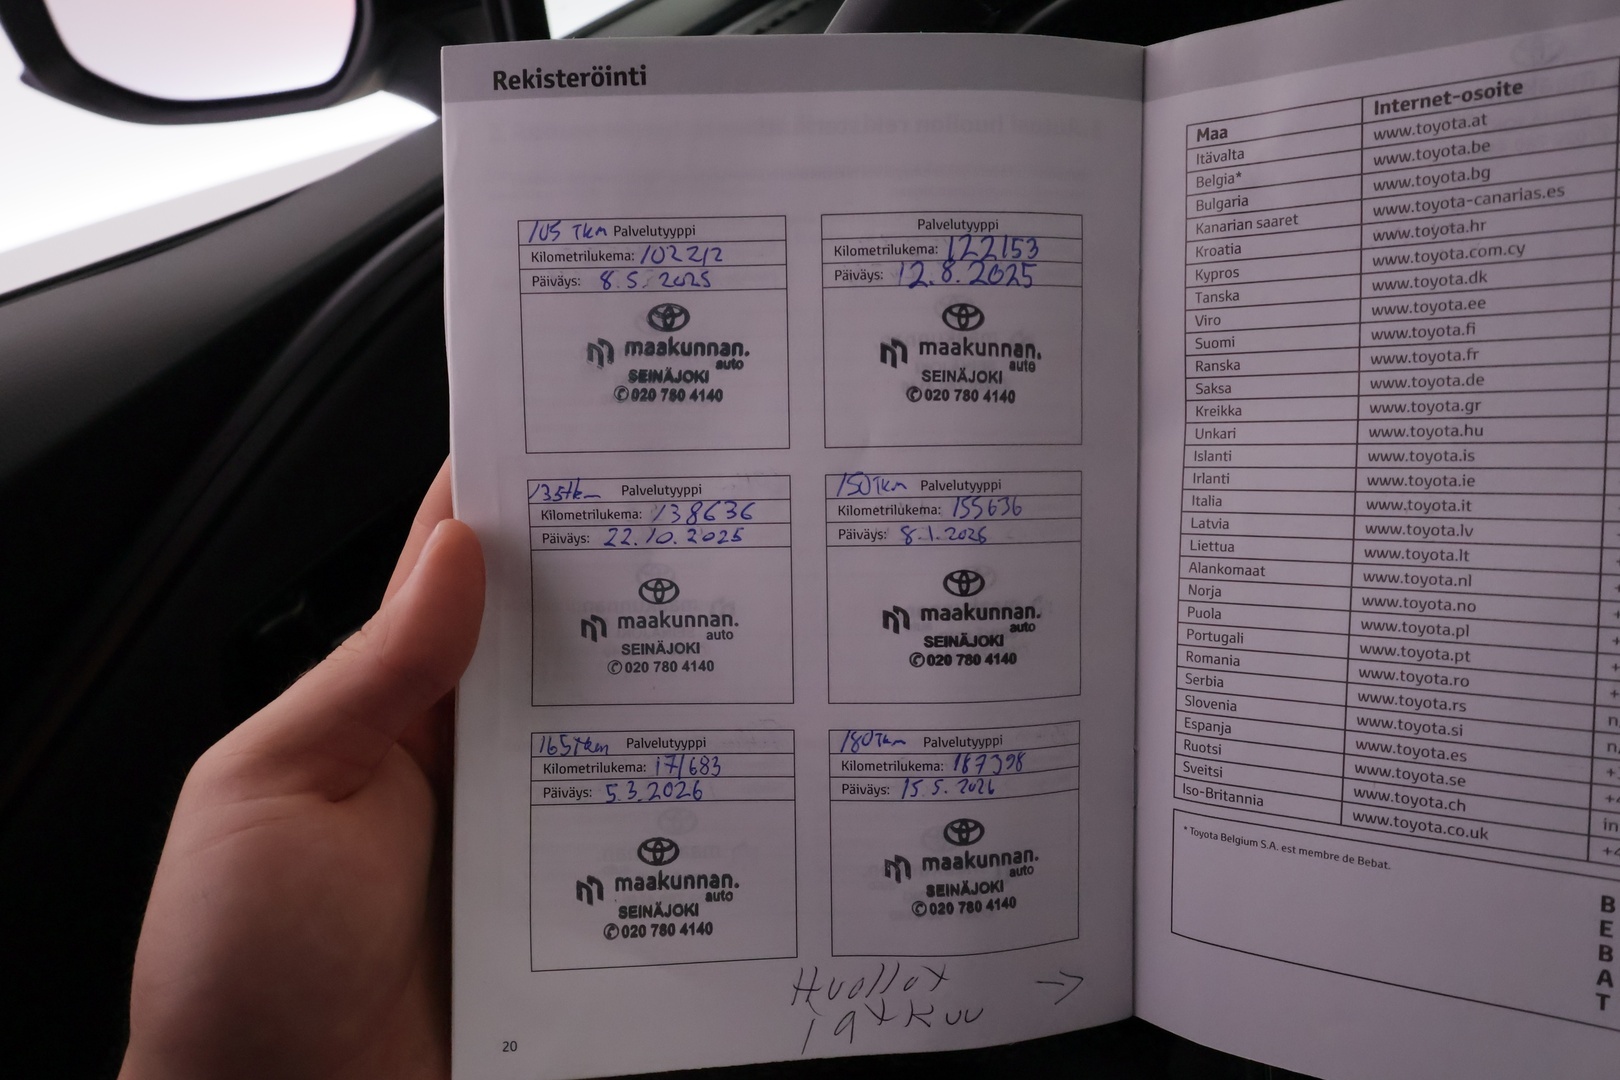 Rekisteröinti
105 Tkm Palvelutyyppi
Kilometrilukema: 102212
Päiväys: 8.5.2025
maakunnan.
auto
SEINÄJOKI
✆020 780 4140
Palvelutyyppi
Kilometrilukema: 122153
Päiväys: 12.8.2025
maakunnan.
auto
SEINÄJOKI
✆020 780 4140
135tkm Palvelutyyppi
Kilometrilukema: 138636
Päiväys: 22.10.2025
maakunnan.
auto
SEINÄJOKI
✆020 780 4140
150Tkm Palvelutyyppi
Kilometrilukema: 155636
Päiväys: 8.1.2026
maakunnan.
auto
SEINÄJOKI
✆020 780 4140
165Tkm Palvelutyyppi
Kilometrilukema: 171683
Päiväys: 5.3.2026
maakunnan.
auto
SEINÄJOKI
✆020 780 4140
180Tkm Palvelutyyppi
Kilometrilukema: 187398
Päiväys: 15.5.2026
maakunnan.
auto
SEINÄJOKI
✆020 780 4140
Huollot →
20
Maa Internet-osoite
Itävalta www.toyota.at
Belgia* www.toyota.be
Bulgaria www.toyota.bg
Kanarian saaret www.toyota-canarias.es
Kroatia www.toyota.hr
Kypros www.toyota.com.cy
Tanska www.toyota.dk
Viro www.toyota.ee
Suomi www.toyota.fi
Ranska www.toyota.fr
Saksa www.toyota.de
Kreikka www.toyota.gr
Unkari www.toyota.hu
Islanti www.toyota.is
Irlanti www.toyota.ie
Italia www.toyota.it
Latvia www.toyota.lv
Liettua www.toyota.lt
Alankomaat www.toyota.nl
Norja www.toyota.no
Puola www.toyota.pl
Portugali www.toyota.pt
Romania www.toyota.ro
Serbia www.toyota.rs
Slovenia www.toyota.si
Espanja www.toyota.es
Ruotsi www.toyota.se
Sveitsi www.toyota.ch
Iso-Britannia www.toyota.co.uk
* Toyota Belgium S.A. est membre de Bebat.
B
E
B
A
T